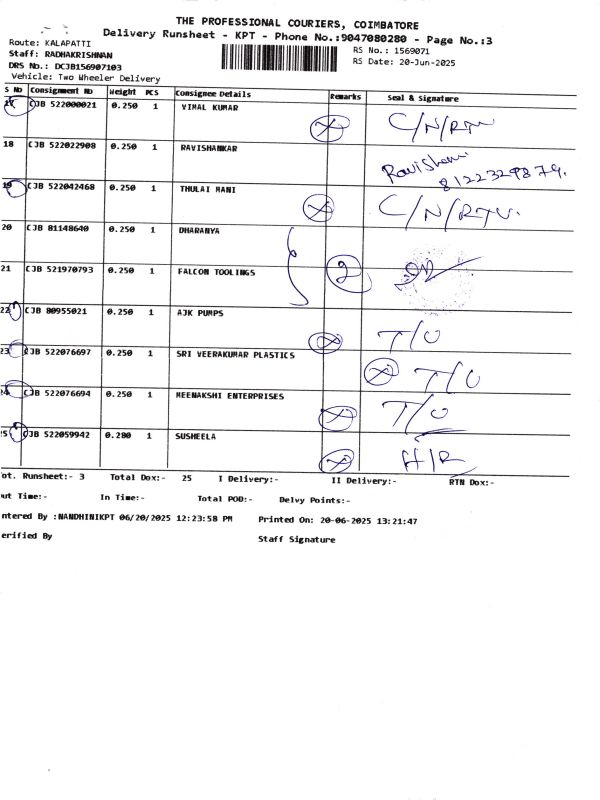 THE PROFESSIONAL COURIERS, COIMBATORE
Delivery Runsheet - KPT - Phone No.:9047080280 - Page No.:3
Route: KALAPATTI
RS No.: 1569071
Staff: RADHAKRISHNAN
RS Date: 20-Jun-2025
DRS No.: DCJB156907103
Vehicle: Two Wheeler Delivery
S No Consignment No Weight PCS Consignee Details Remarks Seal & Signature
17 CJB 522000021 0.250 1 VIMAL KUMAR C/N/RTN
18 CJB 522022908 0.250 1 RAVISHANKAR
8122329879.
19 CJB 522042468 0.250 1 THULAI MANI C/N/RTN.
20 CJB 81148640 0.250 1 DHARANYA
21 CJB 521970793 0.250 1 FALCON TOOLINGS 2
22 CJB 80955021 0.250 1 AJK PUMPS T/O
23 CJB 522076697 0.250 1 SRI VEERAKUMAR PLASTICS T/O
24 CJB 522076694 0.250 1 MEENAKSHI ENTERPRISES T/O
25 CJB 522059942 0.280 1 SUSHEELA H/R
ot. Runsheet:- 3 Total Dox:- 25 I Delivery:- II Delivery:- RTN Dox:-
ut Time:- In Time:- Total POD:- Delvy Points:-
ntered By :NANDHINIKPT 06/20/2025 12:23:58 PM Printed On: 20-06-2025 13:21:47
erified By
Staff Signature